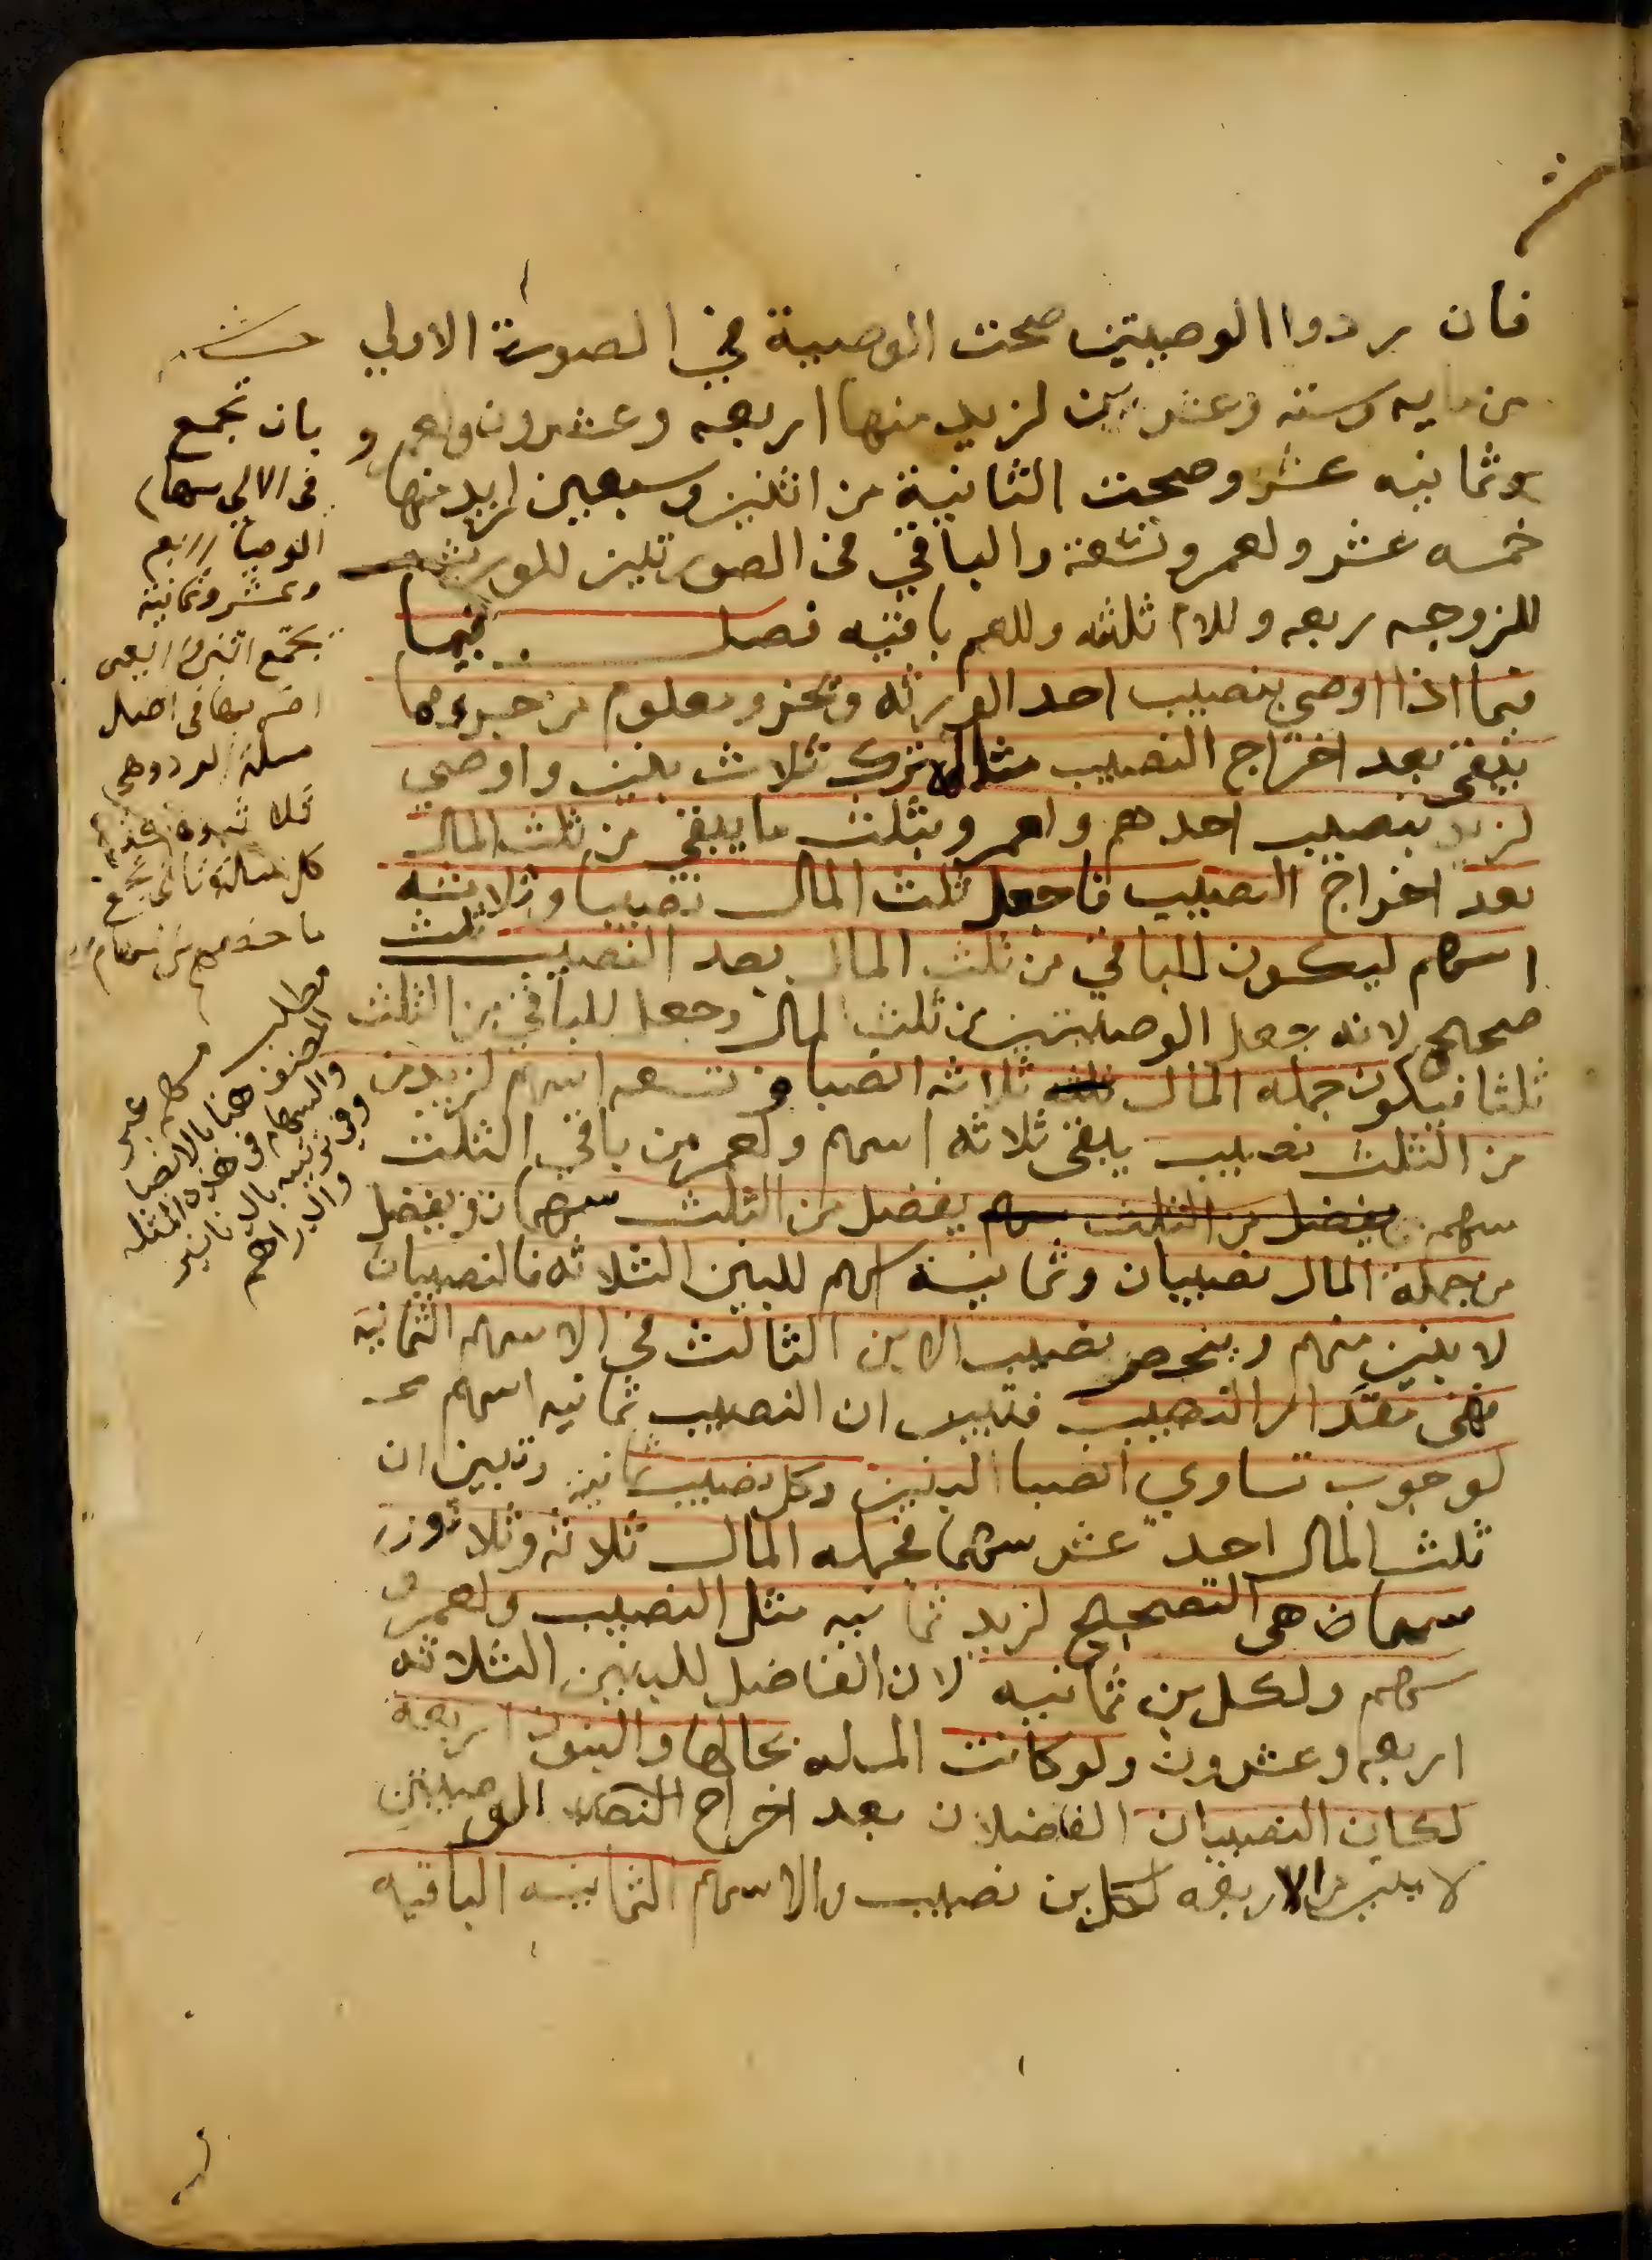 فان ردوا الوصيتين صحت الوصية في الصورة الاولي
من مايه وسته وعشرين لزيد منها اربعه وعشرون ولعمرو
وثمانيه عشر وصحت الثانية من اثنين وسبعين لزيد منها
خمسه عشر ولعمرو تسعة والباقي في الصورتين للورثه
للزوجه ربعه وللام ثلثه وللعم باقيه فصل فيما
فيما اذا اوصي بنصيب احد الورثه وبجزو معلوم من جزو مما
يبقى بعد اخراج النصيب مثاله ترك ثلاث بنين واوصي
لزيد بنصيب احدهم ولعمرو بثلث ما يبقي من ثلث المال
بعد اخراج النصيب فاجعل ثلث المال نصيبا وثلاثه
اسهم ليكون للباقي من ثلث المال بعد النصيب ثلث
صحيح لانه جعل الوصيتين من ثلث المال وجعل للباقي من الثلث
ثلثا فيكون جمله المال ثلاثه انصبا وتسعه اسهم لزيد من
من الثلث نصيب يبقى ثلاثه اسهم ولعمرو من باقي الثلث
سهم يفضل من الثلث سهم يفضل من الثلث سهمان ويفضل
من جملة المال نصيبان وثمانية اسهم للبنين الثلاثه فالنصيبان
لابنين منهم وينحصر نصيب الابن الثالث في الاسهم الثمانيه
فهى مقدار النصيب فتبين ان النصيب ثمانيه اسهم
لوجوب تساوي انصبا البنين وكل نصيب ثمانيه وتبين ان
ثلث المال احد عشر سهما فجمله المال ثلاثه وثلاثون
سهما هى التصحيح لزيد ثمانيه مثل النصيب ولعمرو
سهم ولكل بن ثمانيه لان الفاضل للبنين الثلاثه
اربعه وعشرون ولو كانت المسله بحالها والبنون اربعه
لكان النصيبان الفاضلان بعد اخراج الوصيتين
لابنين من الاربعه لكل بن نصيب والاسهم الثمانيه الباقيه
بان تجمع
في الاولي سهام
الوصايا اربع
وعشر وثمانيه
يجتمع اثنين واربعين
اضربها في اصل
مسلة الرد وهي
ثلاثه
ما
مطلب
المصنف هنا بالانصبا
والسهام في هذه الامثله
وفي بالدنانير
والدراهم